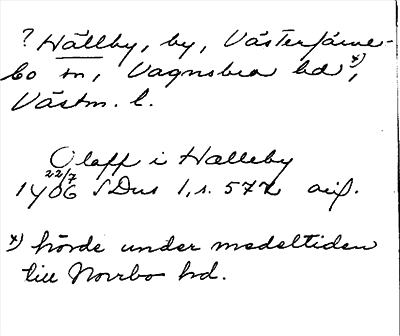 ? Hällby, by, Västerfärne-
bo sn, Vagnsbro hd x),
Västm. l.
Olaff i Halleby
22/7
1406 SDns 1, s. 572 avs.
x) hörde under medeltiden
till Norrbo hd.